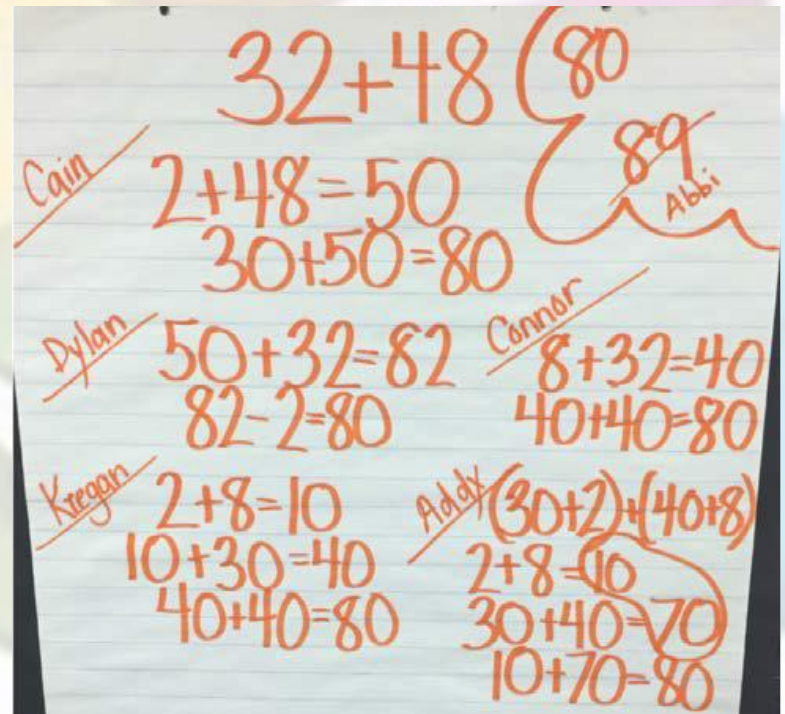 32+48
80
89
Abbi
Cain
2+48=50
30+50=80
Dylan
50+32=82
82-2=80
Connor
8+32=40
40+40=80
Kregan
2+8=10
10+30=40
40+40=80
Addy
(30+2)+(40+8)
2+8=10
30+40=70
10+70=80